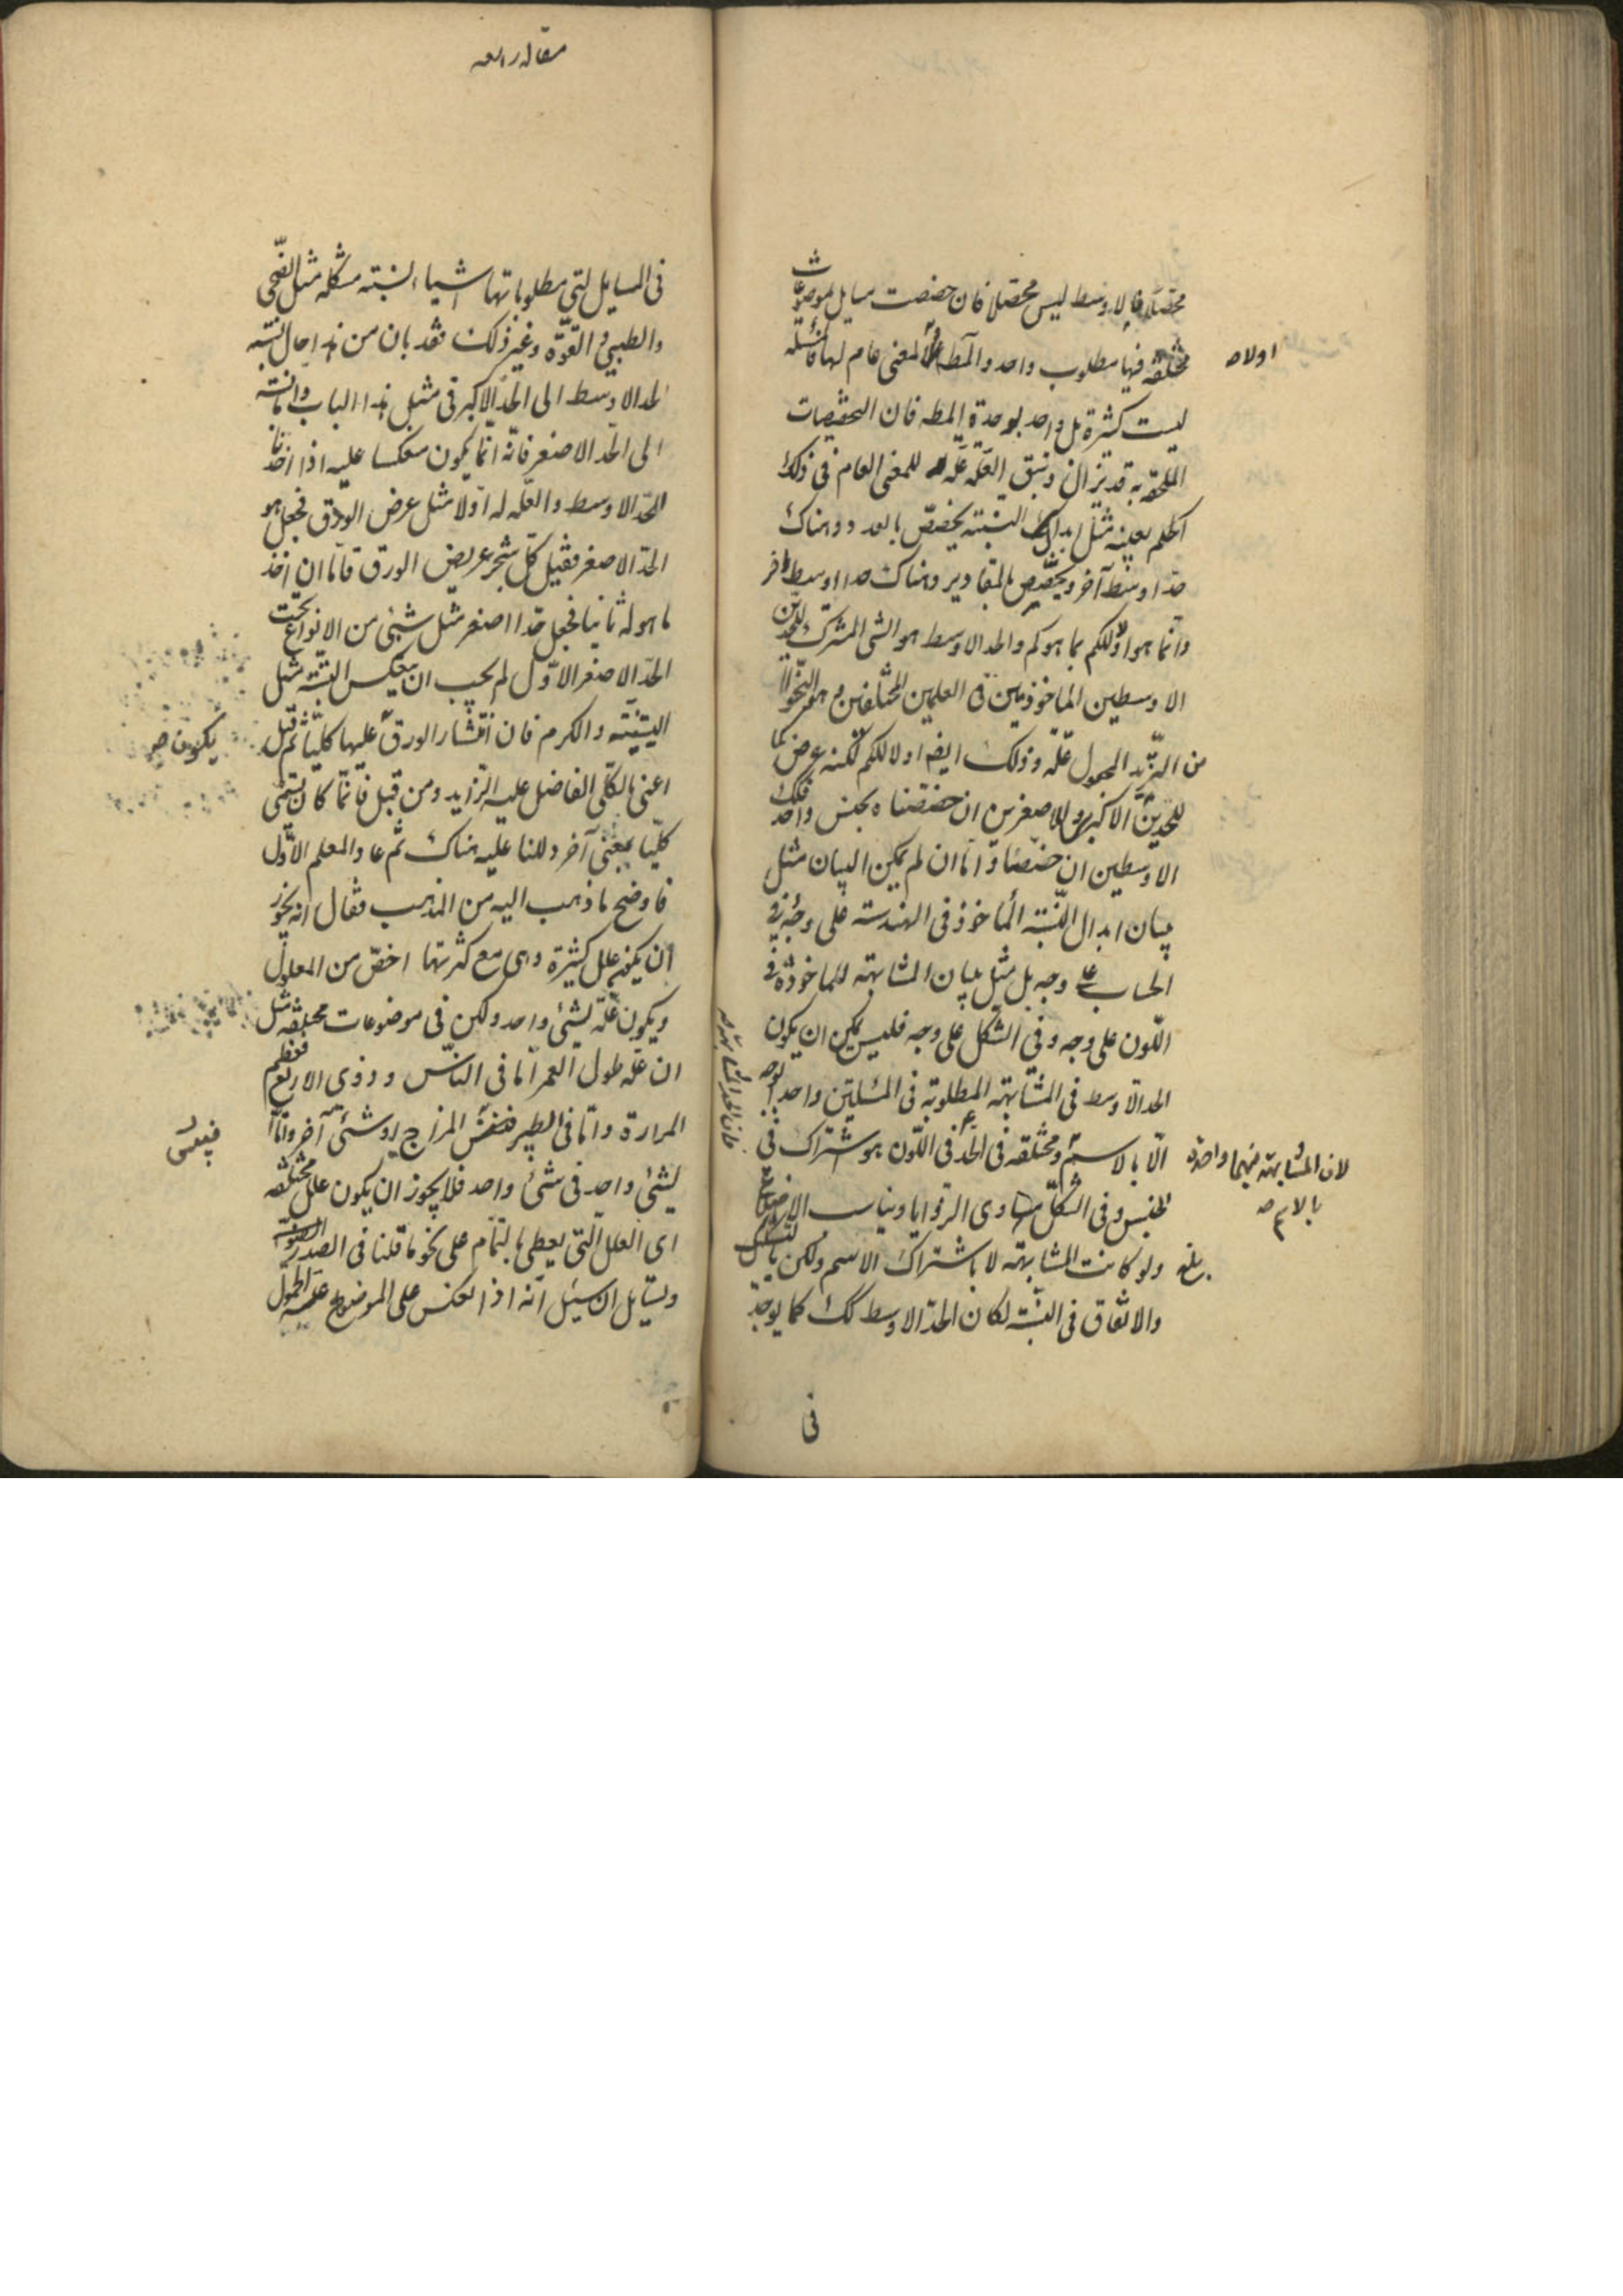 محصلا فالاوسط ليس محصلا فان خصصت مسايل بموضوعات
مختلفة فيها مطلوب واحد والمط اولا لمعنى عام لها فالمسئلة
اولا صح
ليست كثيرة بل واحد لوحدة المط فان التخصيصات
الملحقة به قد يزال وتبقى العلة علة للمعنى العام فى ذلك
الحكم بعينه مثل ابدال النسبته يخصص بالعدد وهناك
حدا اوسط آخر ويخصص بالمقادير وهناك حدا اوسط آخر
وانما هو اولا للكم بما هو كم والحد الاوسط هو الشى المشترك للحدين
الاوسطين الماخوذين فى العلمين المختلفين وهو النحو
من التزيد المجعول علة وذلك ايضا اولا للكم لكنه عرض كما
للحدين الاكبر والاصغرين ان خصصناه بجنس واحد فكك
الاوسطين ان خصصا واما ان لم يكن البيان مثل
بيان ابدال النسبته الماخوذ فى الهندسته على وجه وفى
الحساب على وجه بل مثل بيان المشابهته الماخوذة فى
اللون على وجه وفى الشكل على وجه فليس يمكن ان يكون
الحد الاوسط فى المشابهته المطلوبته فى المسئلتين واحدا
فان الحد المشابهته
الا بالاسم ومختلفه فى الحد فى اللون هو اشتراك فى
لان المشابهته فيهما واحدة
بالاسم صح
الجنس وفى الشكل تساوى الزوايا وتناسب الاضلاع
ولو كانت المشابهته لا باشتراك الاسم ولكن بالتشكك
بلغ
والاتفاق فى النسبته لكان الحد الاوسط كك كما يوجد
فى
مقاله رابعه
فى المسايل التى مطلوباتها اشياء لنسبته مشكله مثل الصحى
والطبى والقوة وغير ذلك فقد بان من هذا حال نسبته
الحد الاوسط الى الحد الاكبر فى مثل هذا الباب واما نسبته
الى الحد الاصغر فانه انما يكون منعكسا عليه اذا اخذنا
الحد الاوسط والعله له اولا مثل عرض الورق فجعل هو
الحد الاصغر فقيل كل شجر عريض الورق فاما ان اخذ
ما هو له ثانيا فجعل حدا اصغر مثل شيئ من الانواع تحت
الحد الاصغر الاول لم يجب ان ينعكس البته مثل
التينته والكرم فان انتشار الورق عليها كليا
يكون صح
اعنى بالكلى الفاضل عليه الزايد ومن قبل فانما كان يسمى
كليا بمعنى آخر دللنا عليه هناك ثم عاد المعلم الاول
فاوضح ما ذهب اليه من المذهب فقال انه يجوز
ان يكون علل كثيرة وهى مع كثرتها اخص من المعلول
ويكون علة لشيئ واحد ولكن فى موضوعات مختلفه مثل
ان علة طول العمر اما فى الناس وذوى الاربع فعظم
المرارة واما فى الطير فيبس المزاج او شيئ آخر واما
فيبس
لشيئ واحد فى شيئ واحد فلا يجوز ان يكون علل مختلفه
اى العلل التى يعطى بالتمام على نحو ما قلنا فى الصدر
ولسايل ان يسئل انه اذ العكس على الموضوع